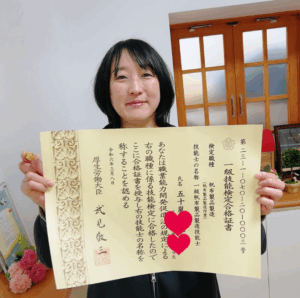 第二三-一-〇七〇-二〇-一〇〇〇三号
一級技能検定合格証書
検定職種 帆布製品製造
技能士の名称 一級帆布製品製造技能士
氏名 五十嵐
あなたは職業能力開発促進法の規定による
右の職種に係る技能検定に合格したので
ここに合格証書を授与し右の技能士の名称を
称することを認める
令和六年三月八日
厚生労働大臣 武見敬三